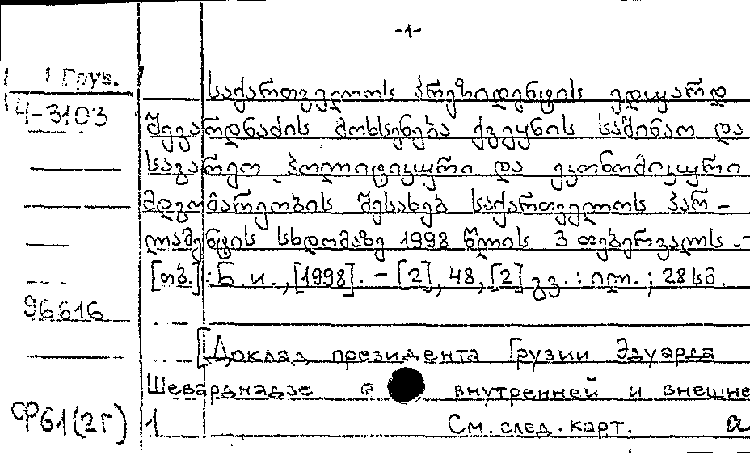 -1-
1 Груз.
4-3103
საქართველოს პრეზიდენტის ედუარდ
შევარდნაძის მოხსენება ქვეყნის საშინაო და
საგარეო პოლიტიკური და ეკონომიკური
მდგომარეობის შესახებ საქართველოს პარ-
ლამენტის სხდომაზე 1998 წლის 3 თებერვალს. -
[თბ.] : Б. и., [1998]. - [2], 48, [2] გვ. : ილ. ; 28 სმ.
96616
[Доклад президента Грузии Эдуарда
Шеварднадзе о внутренней и внешне
Ф61(2Г) 1 См. след. карт. а